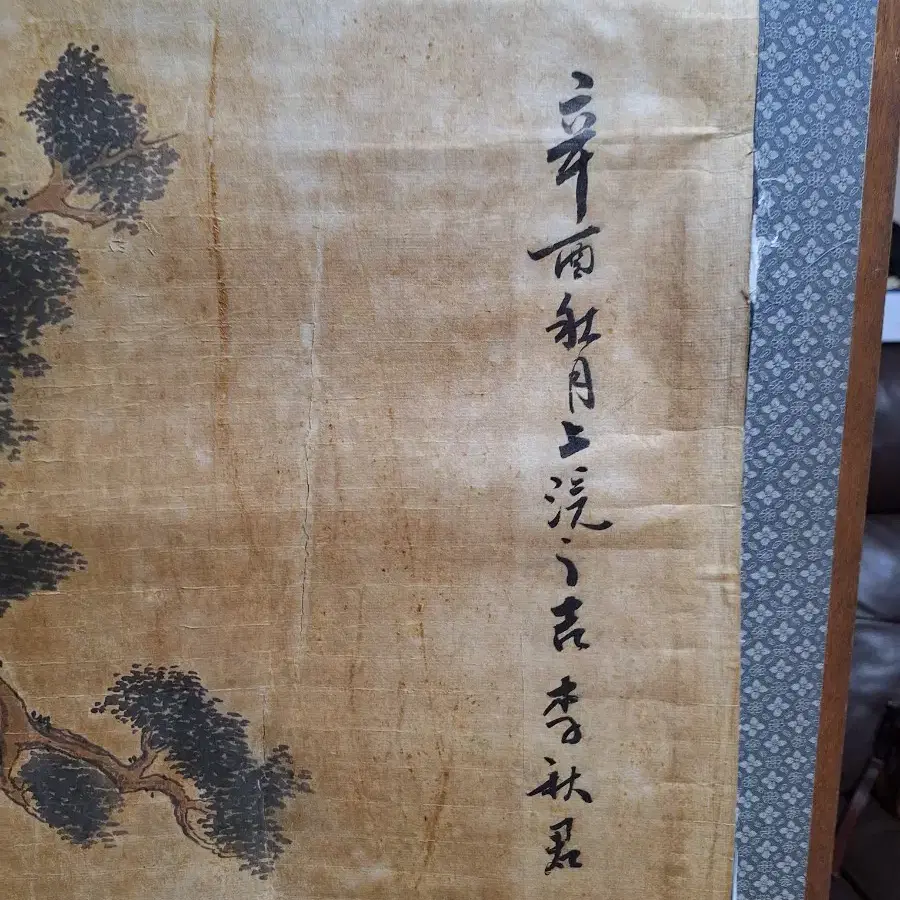 辛酉秋月上浣之吉 李秋君